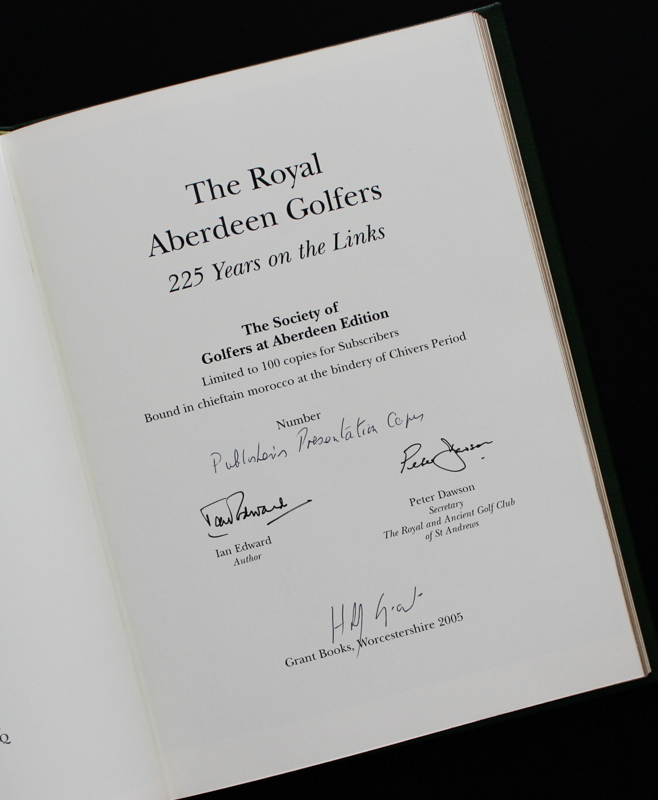 The Royal
Aberdeen Golfers
225 Years on the Links
The Society of
Golfers at Aberdeen Edition
Limited to 100 copies for Subscribers
Bound in chieftain morocco at the bindery of Chivers Period
Number
Publisher's Presentation Copy
Ian Edward
Peter Dawson
Ian Edward
Author
Peter Dawson
Secretary
The Royal and Ancient Golf Club
of St Andrews
H Grant
Grant Books, Worcestershire 2005
Q